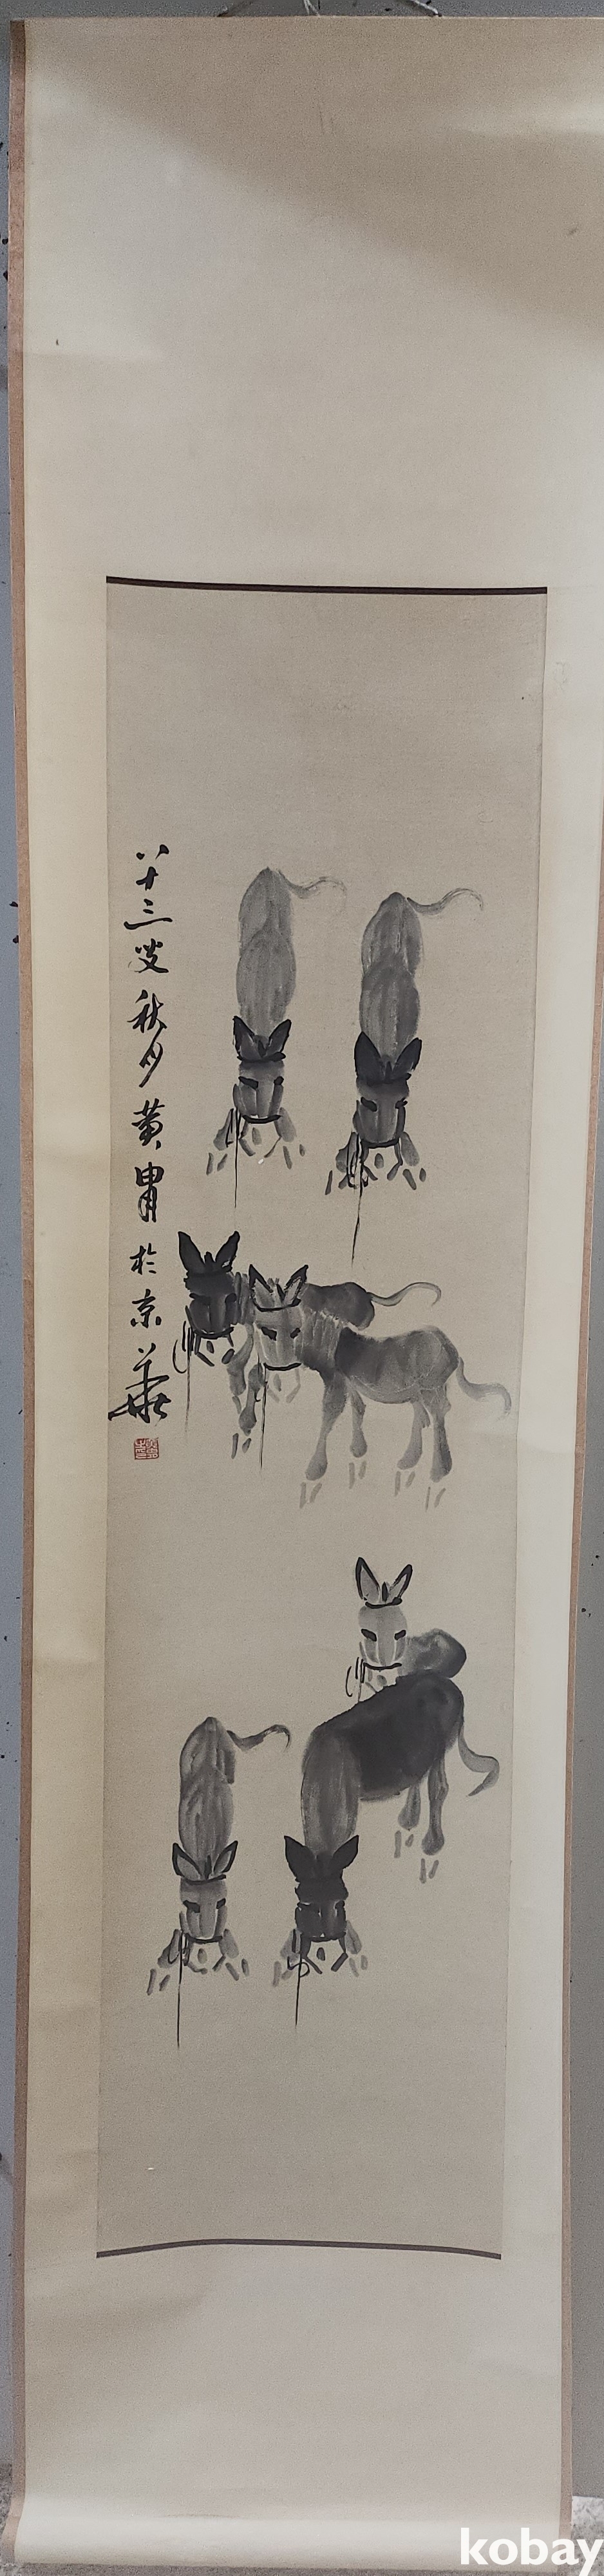 八十三叟秋月黄胄於京華
kobay